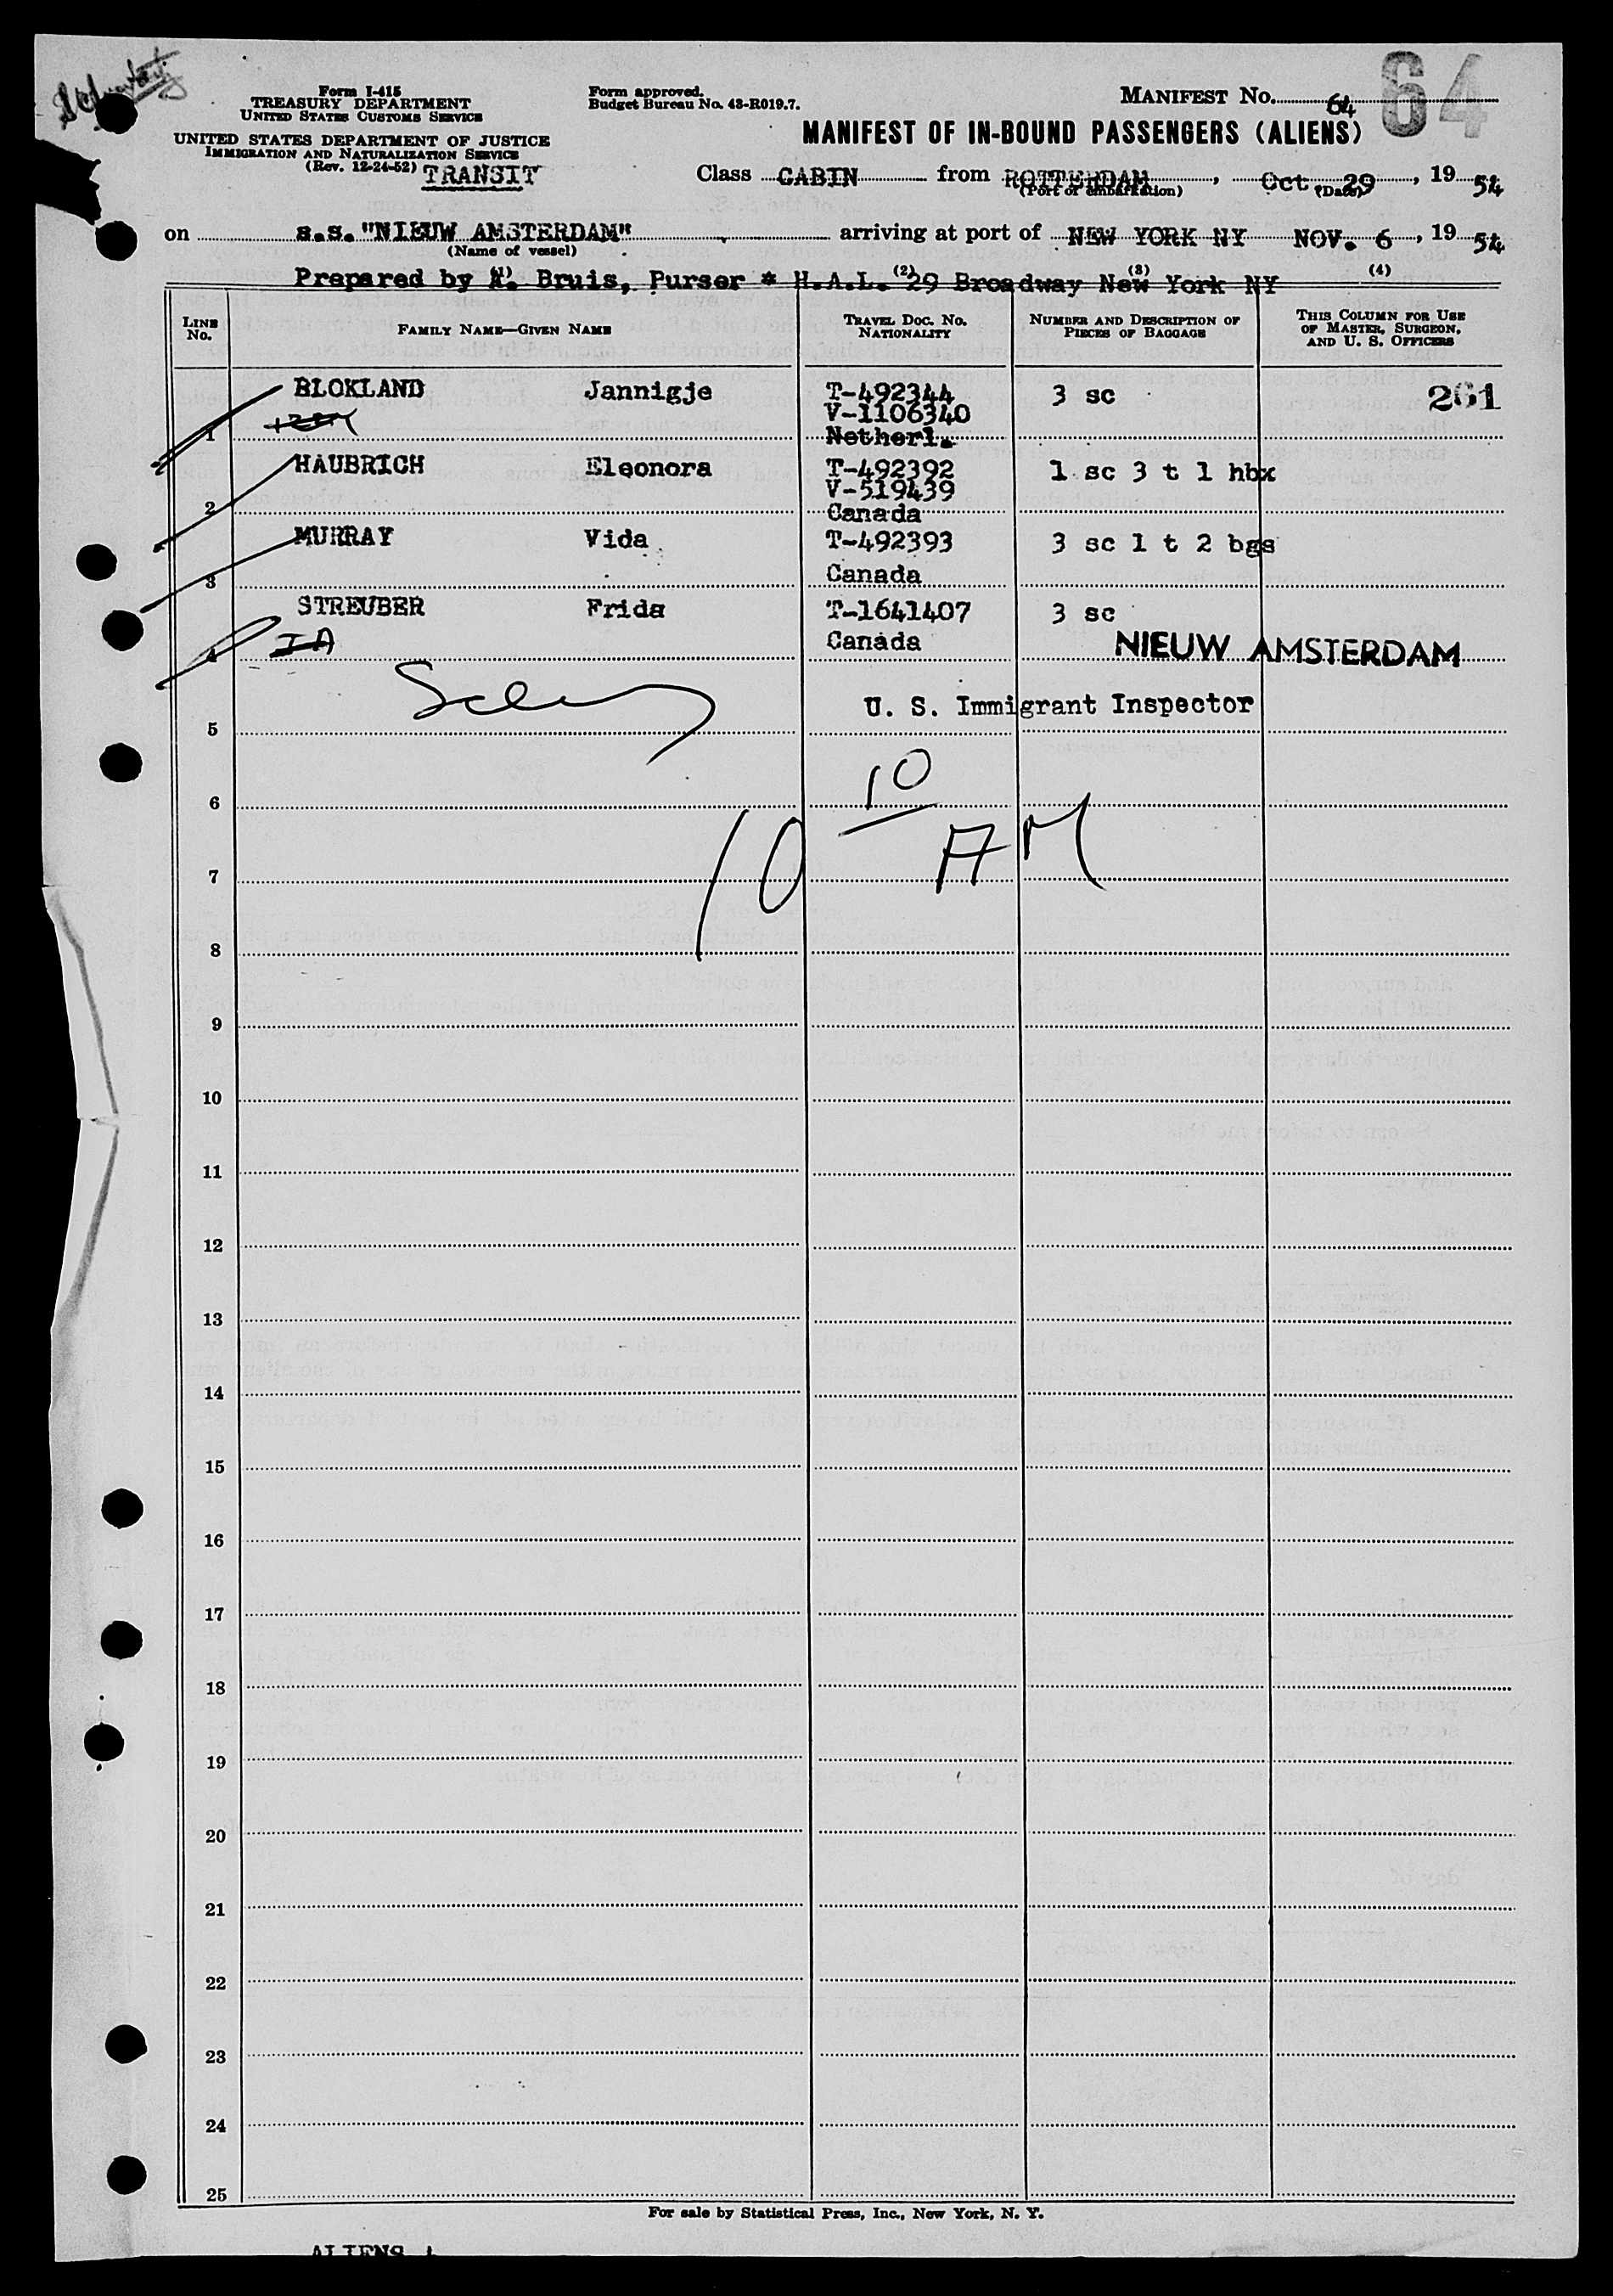 64
Form I-415
TREASURY DEPARTMENT
UNITED STATES CUSTOMS SERVICE
UNITED STATES DEPARTMENT OF JUSTICE
IMMIGRATION AND NATURALIZATION SERVICE
(Rev. 12-24-52) TRANSIT
Form approved.
Budget Bureau No. 43-R019.7.
MANIFEST No. 64
MANIFEST OF IN-BOUND PASSENGERS (ALIENS)
Class CABIN from ROTTERDAM, Oct 29, 19 54
(Port of embarkation) (Date)
on s.s. "NIEUW AMSTERDAM" arriving at port of NEW YORK NY NOV. 6, 19 54
(Name of vessel)
Prepared by Bruis, Purser * H.A.L. 29 Broadway New York NY
(1) (2) (3) (4)
LINE No. FAMILY NAME—GIVEN NAME TRAVEL DOC. NO. NATIONALITY NUMBER AND DESCRIPTION OF PIECES OF BAGGAGE THIS COLUMN FOR USE OF MASTER, SURGEON, AND U. S. OFFICERS
BLOKLAND Jannigje T-492344 3 sc 261
V-1106340
1 Netherl.
HAUBRICH Eleonora T-492392 1 sc 3 t 1 hbx
V-519439
2 Canada
MURRAY Vida T-492393 3 sc 1 t 2 bgs
3 Canada
STREUBER Frida T-1641407 3 sc
4 IA Canada NIEUW AMSTERDAM
U. S. Immigrant Inspector
5
6 10
7 10 AM
8
9
10
11
12
13
14
15
16
17
18
19
20
21
22
23
24
25
For sale by Statistical Press, Inc., New York, N. Y.
ALIENS